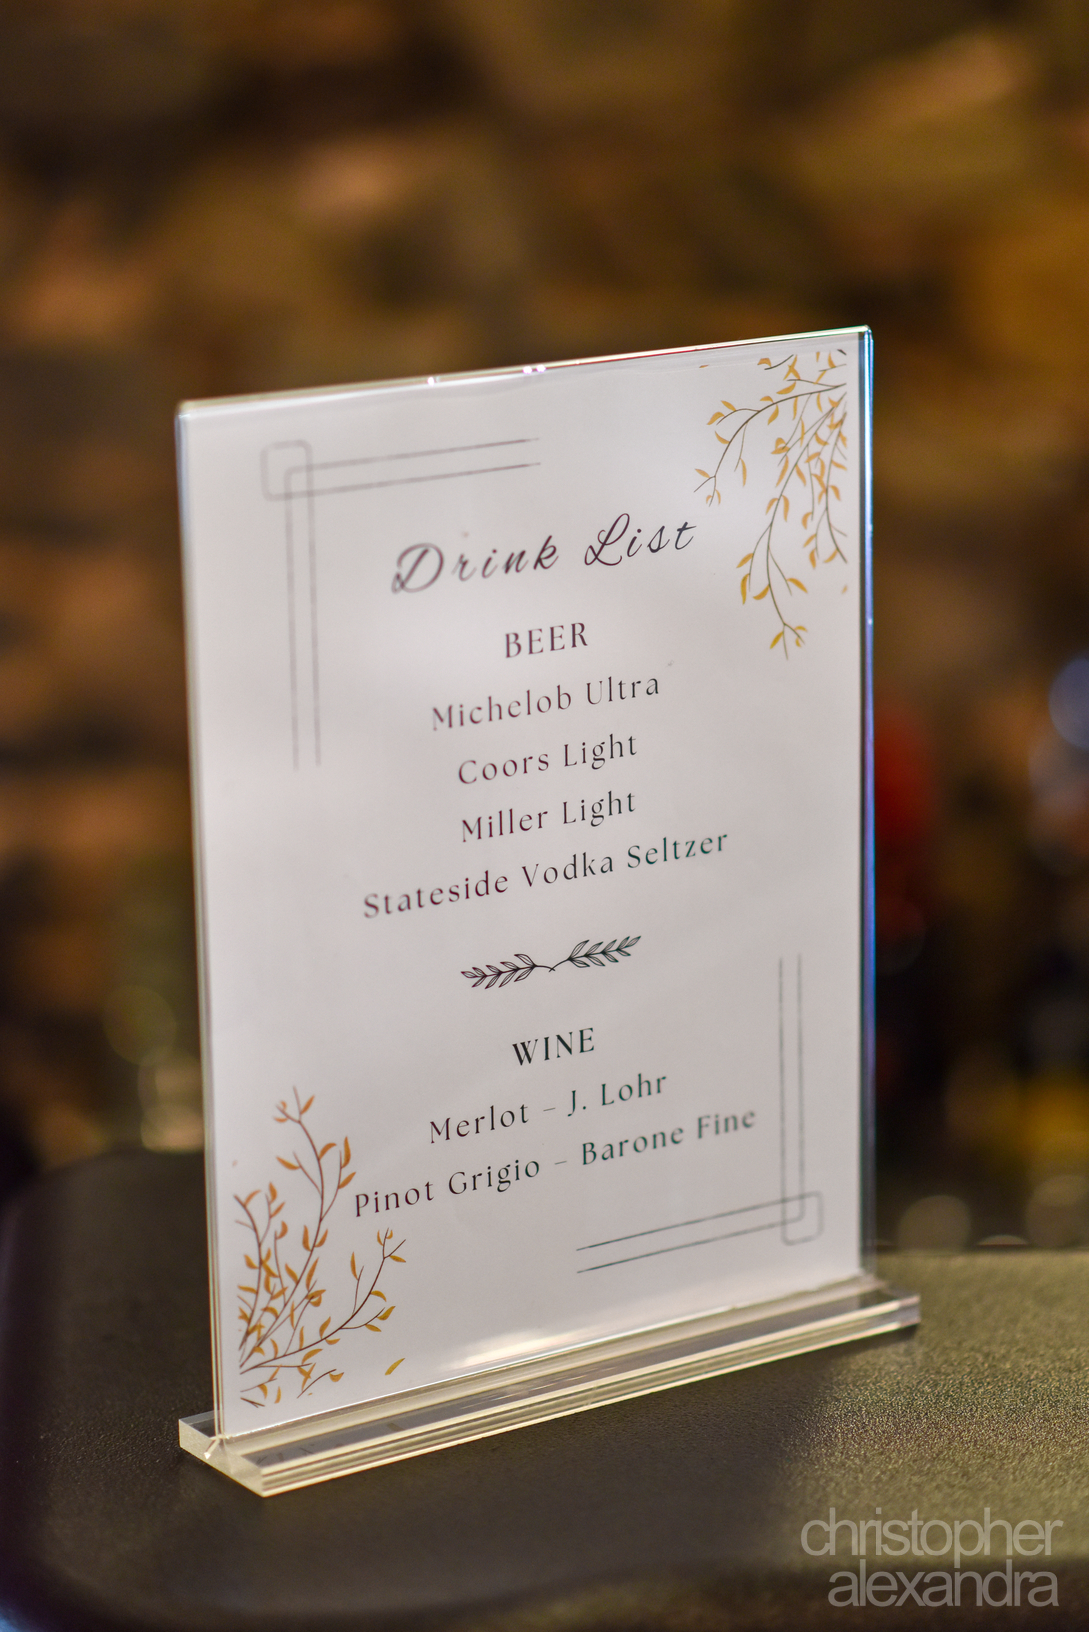 Drink List
BEER
Michelob Ultra
Coors Light
Miller Light
Stateside Vodka Seltzer
WINE
Merlot – J. Lohr
Pinot Grigio – Barone Fine
christopher
alexandra